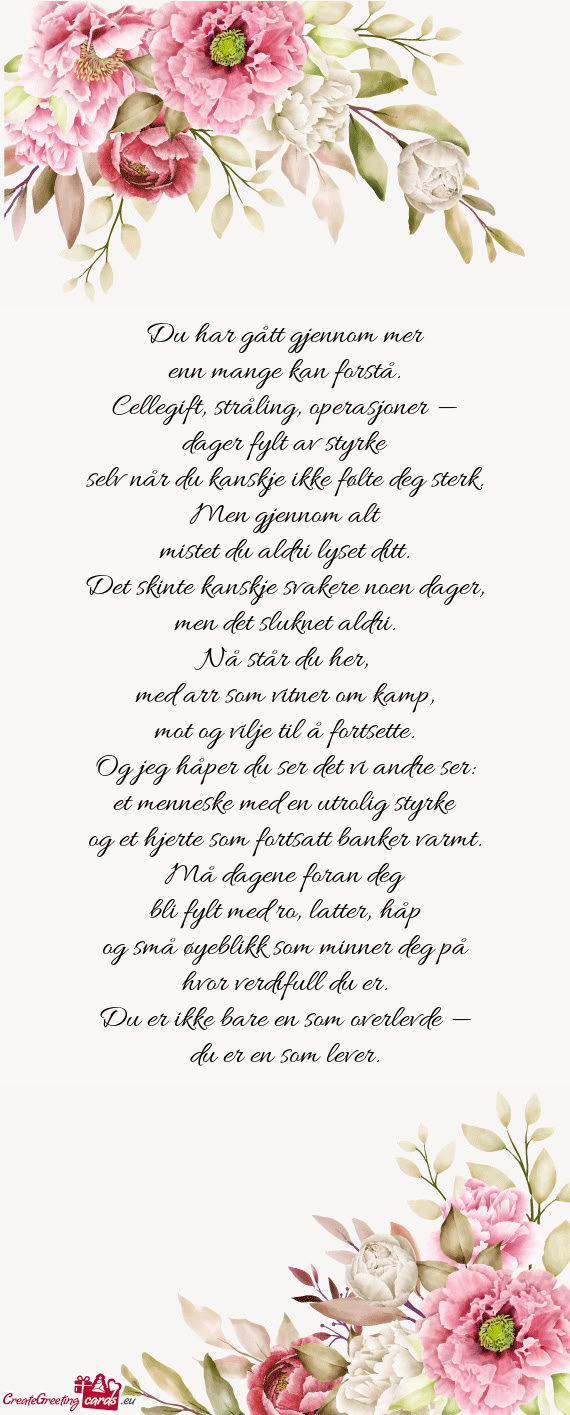 Du har gått gjennom mer
enn mange kan forstå.
Cellegift, stråling, operasjoner –
dager fylt av styrke
selv når du kanskje ikke følte deg sterk.
Men gjennom alt
mistet du aldri lyset ditt.
Det skinte kanskje svakere noen dager,
men det sluknet aldri.
Nå står du her,
med arr som vitner om kamp,
mot og vilje til å fortsette.
Og jeg håper du ser det vi andre ser:
et menneske med en utrolig styrke
og et hjerte som fortsatt banker varmt.
Må dagene foran deg
bli fylt med ro, latter, håp
og små øyeblikk som minner deg på
hvor verdifull du er.
Du er ikke bare en som overlevde –
du er en som lever.
CreateGreeting cards .eu